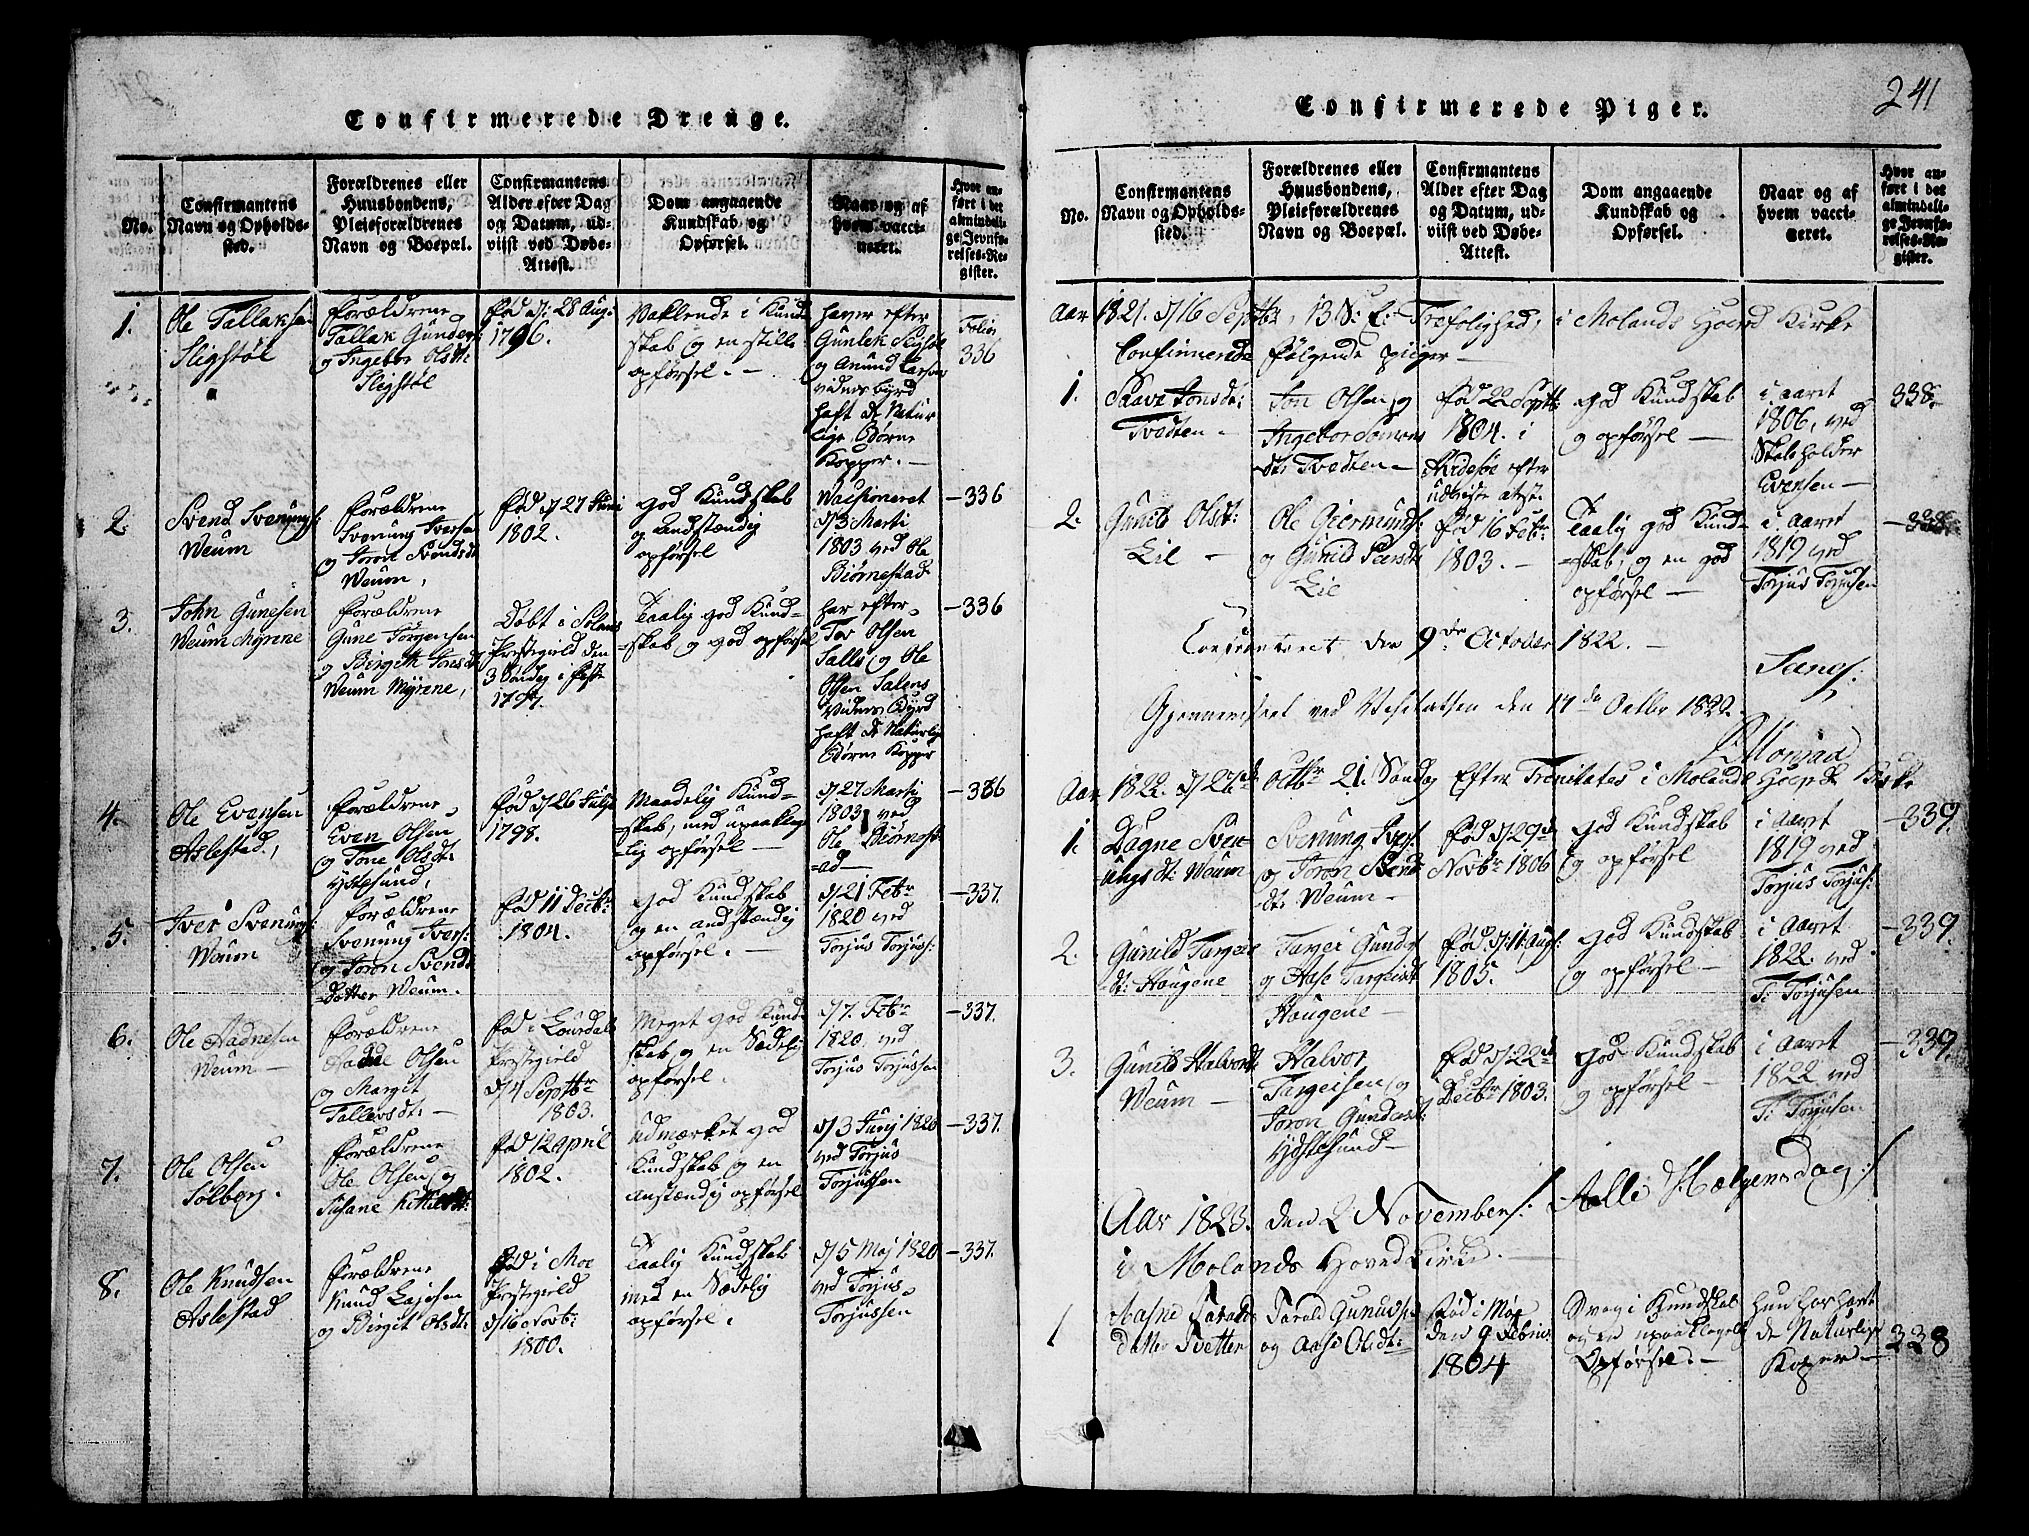 241
Confirmerede Drenge.
No.
Confirmantens
Navn og Opholds-
sted.
Forældrenes eller
Huusbondens,
Pleieforældrenes
Navn og Boepæl.
Confirmantens
Alder efter Dag
og Datum, ud-
viist ved Døbe-
Attest.
Dom angaaende
Kundskab og
Opførsel.
Naar og af
hvem vacci-
neret.
Hvor an-
ført i det
almindeli-
ge Jevnfø-
relses-Re-
gister.
1.
Ole Tallaksen
Sligstøl
Forældrene
Tallak Gunders:
og Ingebor Olsdt:
Sligstøl
Fød d: 28 Aug:
1796.
Vaklende i Kund
skab og en stille
opførsel. -
haver efter
Gunlek
og Anund Larsen
vidnes byrd
haft de Natur
lige Børne
Kopper. -
Folio
336
2.
Svend Svenungs:
Weum
Forældrene
Svenung Iversen
og Joron Svendsdt
Weum,
Fød d 27 Juni
1802.
god Kundskab
og Andstændig
opførsel
Vacsioneret
d 3 Marti
1803 ved Ole
Biørnestad
-336
3.
John Gunesen
Weum Myrene
Forældrene
Gune Jørgensen
og Birgeth Jonsdt
Weum Myrene,
Døbt i
Prestegield den
3 Søndag i Faste
1797.
Taalig god Kund-
=skab og god opførsel
har efter
Tov Olsen
og Ole
Olsen
Vidnes Byrd
haft de Naturlig
Børne Kopper
-336
4.
Ole Evensen
Aslestad,
Forældrene
Even Olsen
og Tone Olsdt:
Ydstesund,
Fød d 26 Julii
1798.
Maadelig Kund-
=skab, med upaaklag
=lig opførsel -
d 27 Marti
1803 ved
Ole Biørnest
=ad -
-336
5.
Iver Svenungs:
Weum
Forældrene
Svenung Ivers:
og Joron Svends
=Datter Weum.
Fød 11 Decbr:
1804.
god Kundskab
og en andstændig
opførsel. -
d 21 Febr
1820 ved
Torjus Torjus:
-337.
6.
Ole Aadnesen
Weum -
Forældrene
Aadne Olsen
og Margit
Tallevsdt: -
Fød i Lourdals
Prestegield
d 4 Septbr
1803.
Meget god Kund
skab og en Sædelig
opførsel.
d 7. Febr
1820. ved
Torjus Torjussen
-337.
7.
Ole Olsen
Solberg.
Forældrene
Ole Olsen og
Susane Kittilsdt:
Fød 12 April
1802.
Udmærket god
Kundskab og en
anstændig opførsel
d 3 Junj 1820
ved Torjus
Torjussen
-337.
8.
Ole Knudsen
Aslestad
Forældrene
Knud
og Birgit Olsdt:
Fød i Moe
Prestegield
d 16 Novb:
1800.
Taalig Kundskab
med en Sædelig
opførsel.
d 5 Maj 1820
ved Torjus
Torjussen
-337.
Confirmerede Piger.
No.
Confirmantens
Navn og Opholds-
sted.
Forældrenes eller
Huusbondens,
Pleieforældrenes
Navn og Boepæl.
Confirmantens
Alder efter Dag
og Datum, ud-
viist ved Døbe-
Attest.
Dom angaaende
Kundskab og
Opførsel.
Naar og af
hvem vacci-
neret.
Hvor an-
ført i det
almindeli-
ge Jevnfø-
relses-Re-
gister.
Aar 1821. d 16 Septbr, 13 S. E. Trefolighed, i Molands Hoved Kirke
Confirmerede følgende piiger -
1.
Jonsdt:
Tvedten -
Jon Olsen og
Ingebor
dtr Tvedten -
Fød 22 Septbr
1804. i
efter
udviiste atest.
god Kundskab
og opførsel -
i aaret
1806, ved
Skoleholder
Evensen -
338.
2.
Gunild Olsdt:
Lie -
Ole Giermunds:
og Gunild
Lie
Fød 16 Febr:
1803. -
Taalig god Kund-
=skab, og en god
opførsel -
i Aaret
1819 ved
Torjus Torjusen
-338.
Confronteret den 9de October 1822. -
Gjennemseet ved Visitatsen den 17de Octbr 1822.
Aar 1822. d 27de Octbr 21. Søndag Efter Trenitates i Molands Hoved Kirke
1.
Dagne Sven-
ungsdt: Weum
Svenung Ivers:
og Joron Svends
dtr Weum -
Fød d 29de
Novbr 1806
god Kundskab
og opførsel
i Aaret
1819 ved
Torjus Torjus:
-339.
2.
Gunild Targeis
dt: Haugene
Targei Gunders
og Aase Targeisdt
Haugene -
Fød. d: 11 Augs:
1805.
God Kundskab
og opførsel -
i Aaret
1822. ved
T: Torjusen
-339.
3.
Gunild Halvorsdt
Weum -
Halvor
Targeisen, og
Joron Gundersdt:
Ydstesund -
Fød d 22de
Decbr 1803.
god Kundskab
og opførsel -
i Aaret
1822 ved
T: Torjusen
-339.
Aar 1823. den 2 November /: Alle Helgensdag :/
i Molands Hovedkirke. -
1
Aasne Taralds
datter Tvetten
Tarald Gunuss:
og Aase Olsdt:
Fød i Moe
den 9
1804
Svag i Kundskab
og en upaaklagelig
Opførsel. -
hun har havt
de Naturlige
Koper -
338